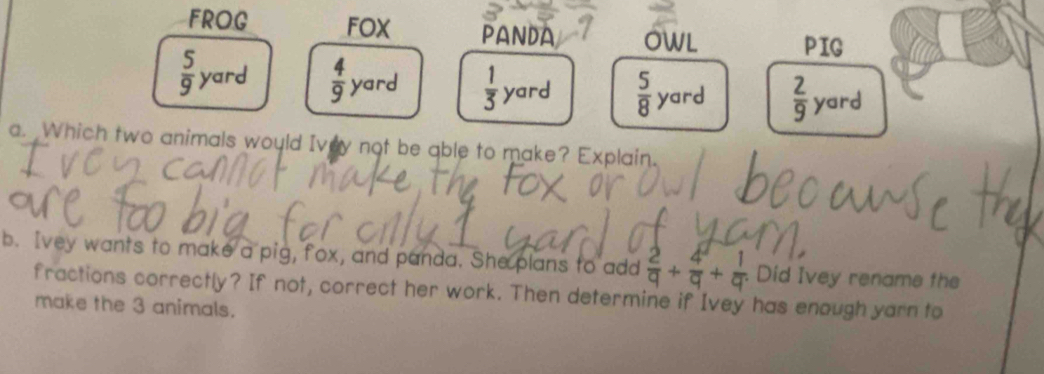 FROG FOX PANDA OWL PIG
5/9 yard 4/9 yard 1/3 yard 5/8 yard 2/9 yard
a. Which two animals would Ivey not be able to make? Explain.
Ivey cannot make the Fox or Owl becawse they
are too big for only 1 yard of yarn.
b. Ivey wants to make a pig, fox, and panda. She plans to add 2/9 + 4/9 + 1/9. Did Ivey rename the
fractions correctly? If not, correct her work. Then determine if Ivey has enough yarn to
make the 3 animals.